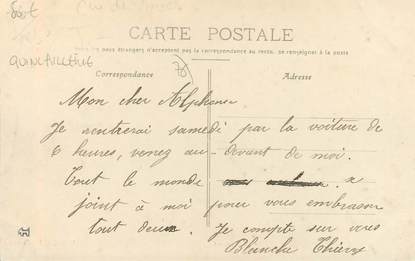 CARTE POSTALE
Tous les pays étrangers n'acceptent pas la correspondance au recto, se renseigner à la poste
QUINCAILLERIE
76
Correspondance
Adresse
Mon cher Alphonse
Je rentrerai samedi par la voiture de
6 heures, venez au-devant de moi.
Tout le monde se
joint à moi pour vous embrasser
tout deux. Je compte sur vous
Blanche Thieux